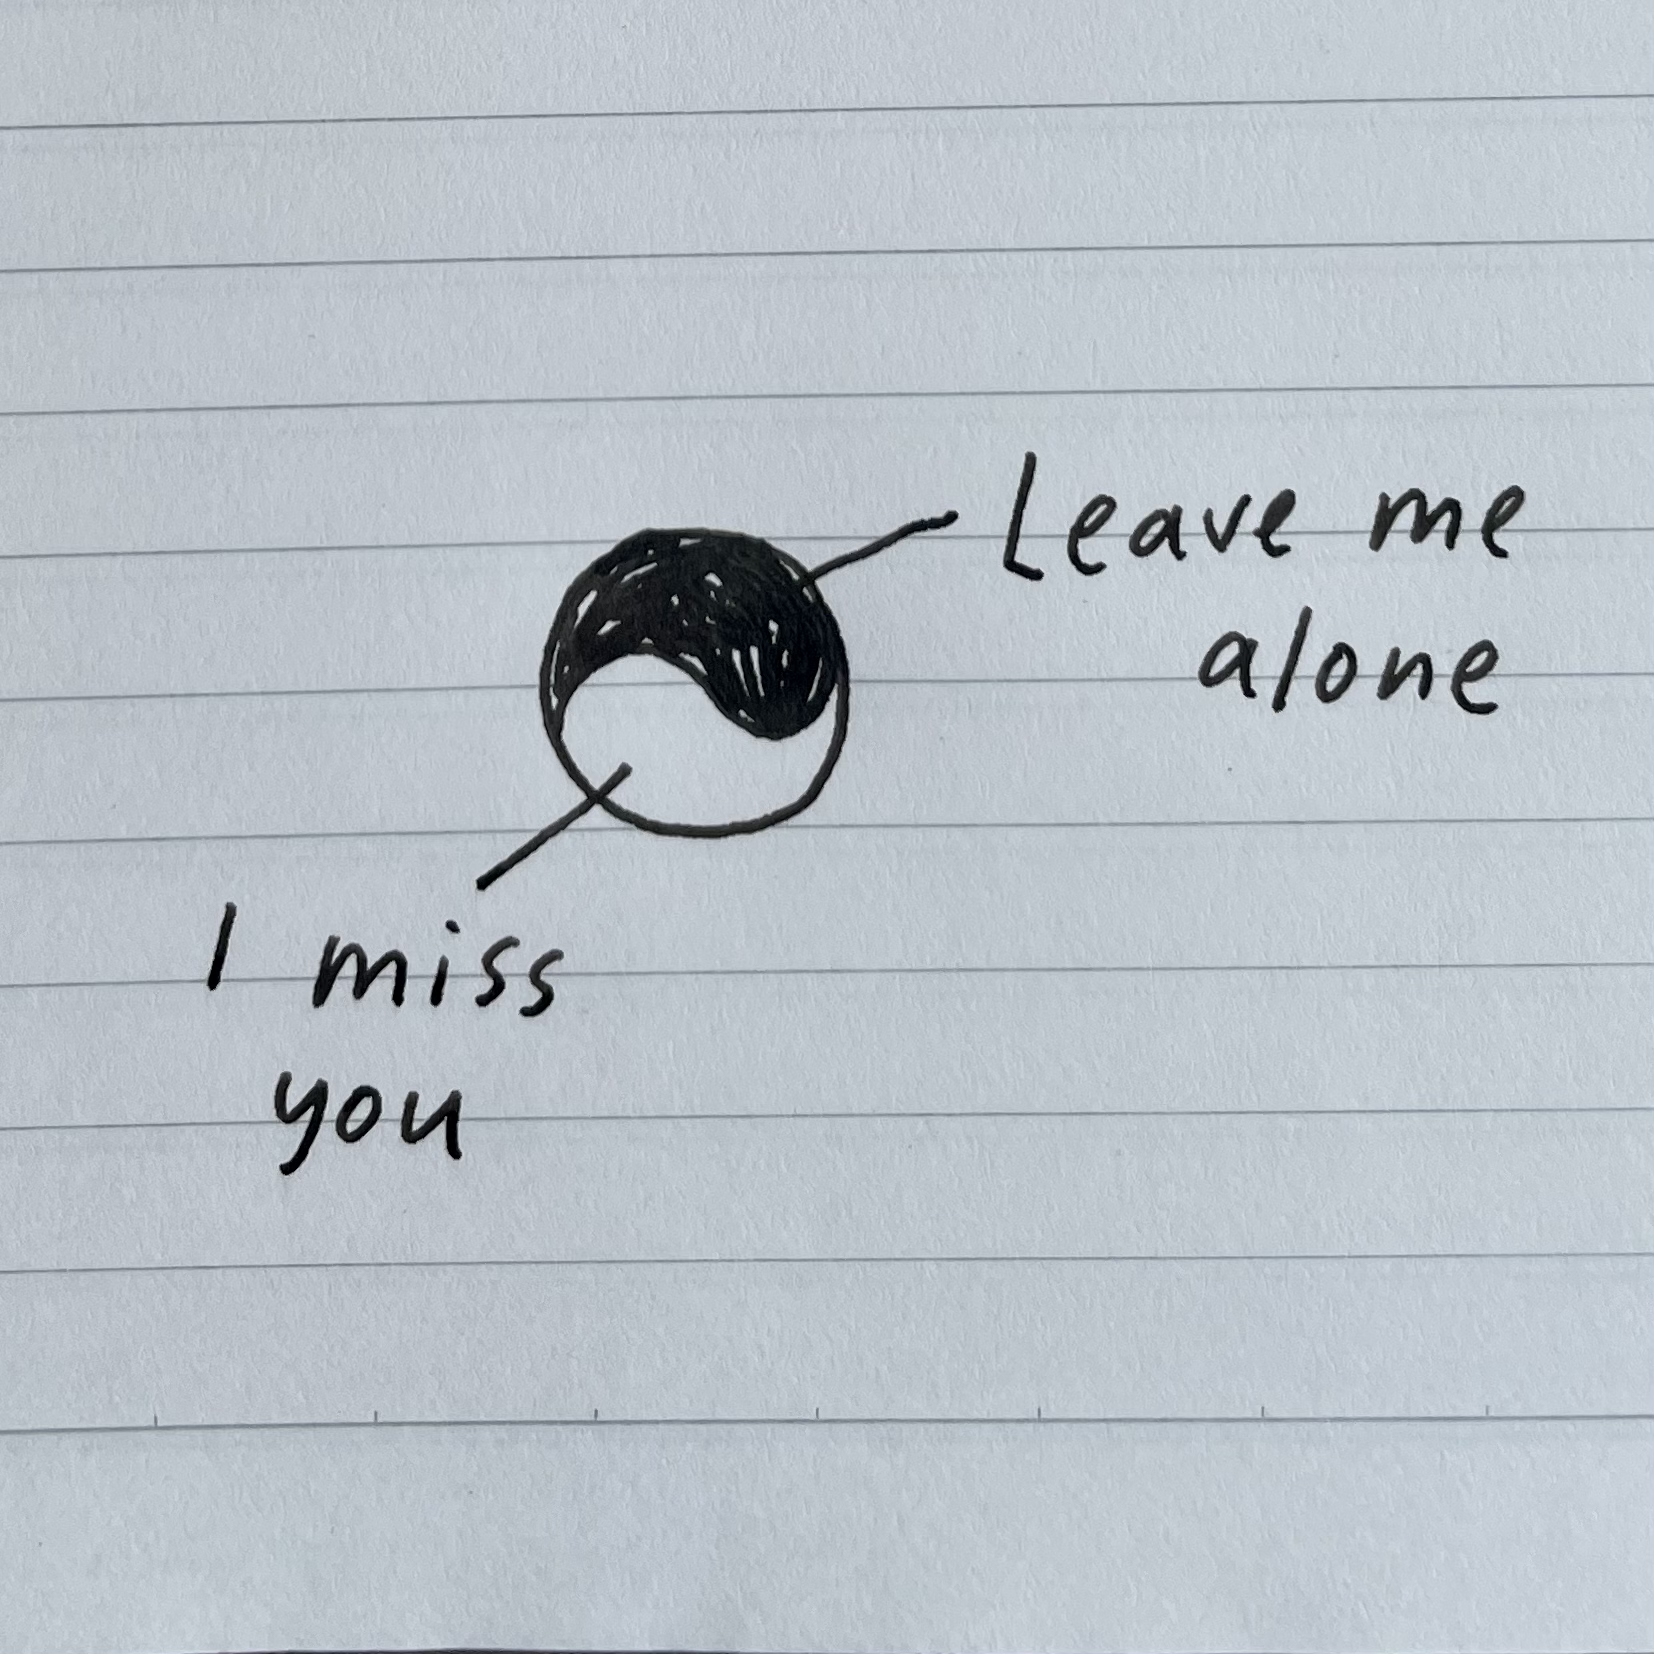 Leave me
alone
I miss
you